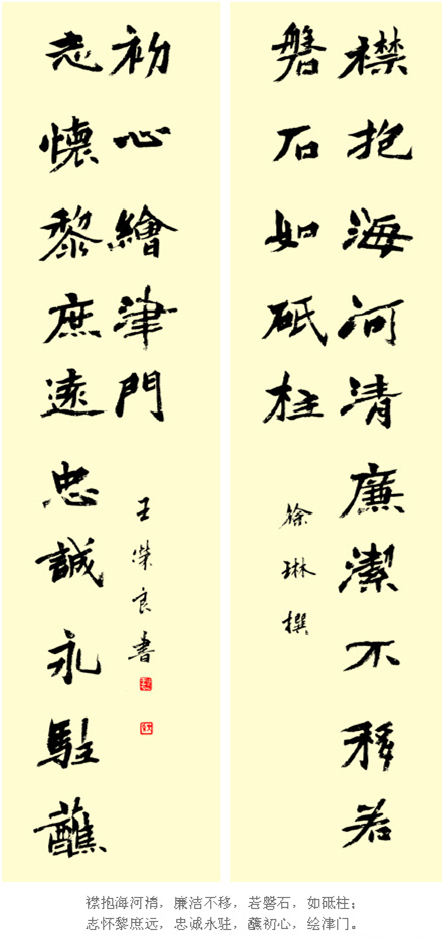 襟抱海河清廉潔不移若
磐石如砥柱
徐琳撰
志懷黎庶遠忠誠永駐蘸
初心繪津門
王榮良書
襟抱海河清，廉洁不移，若磐石，如砥柱；
志怀黎庶远，忠诚永驻，蘸初心，绘津门。